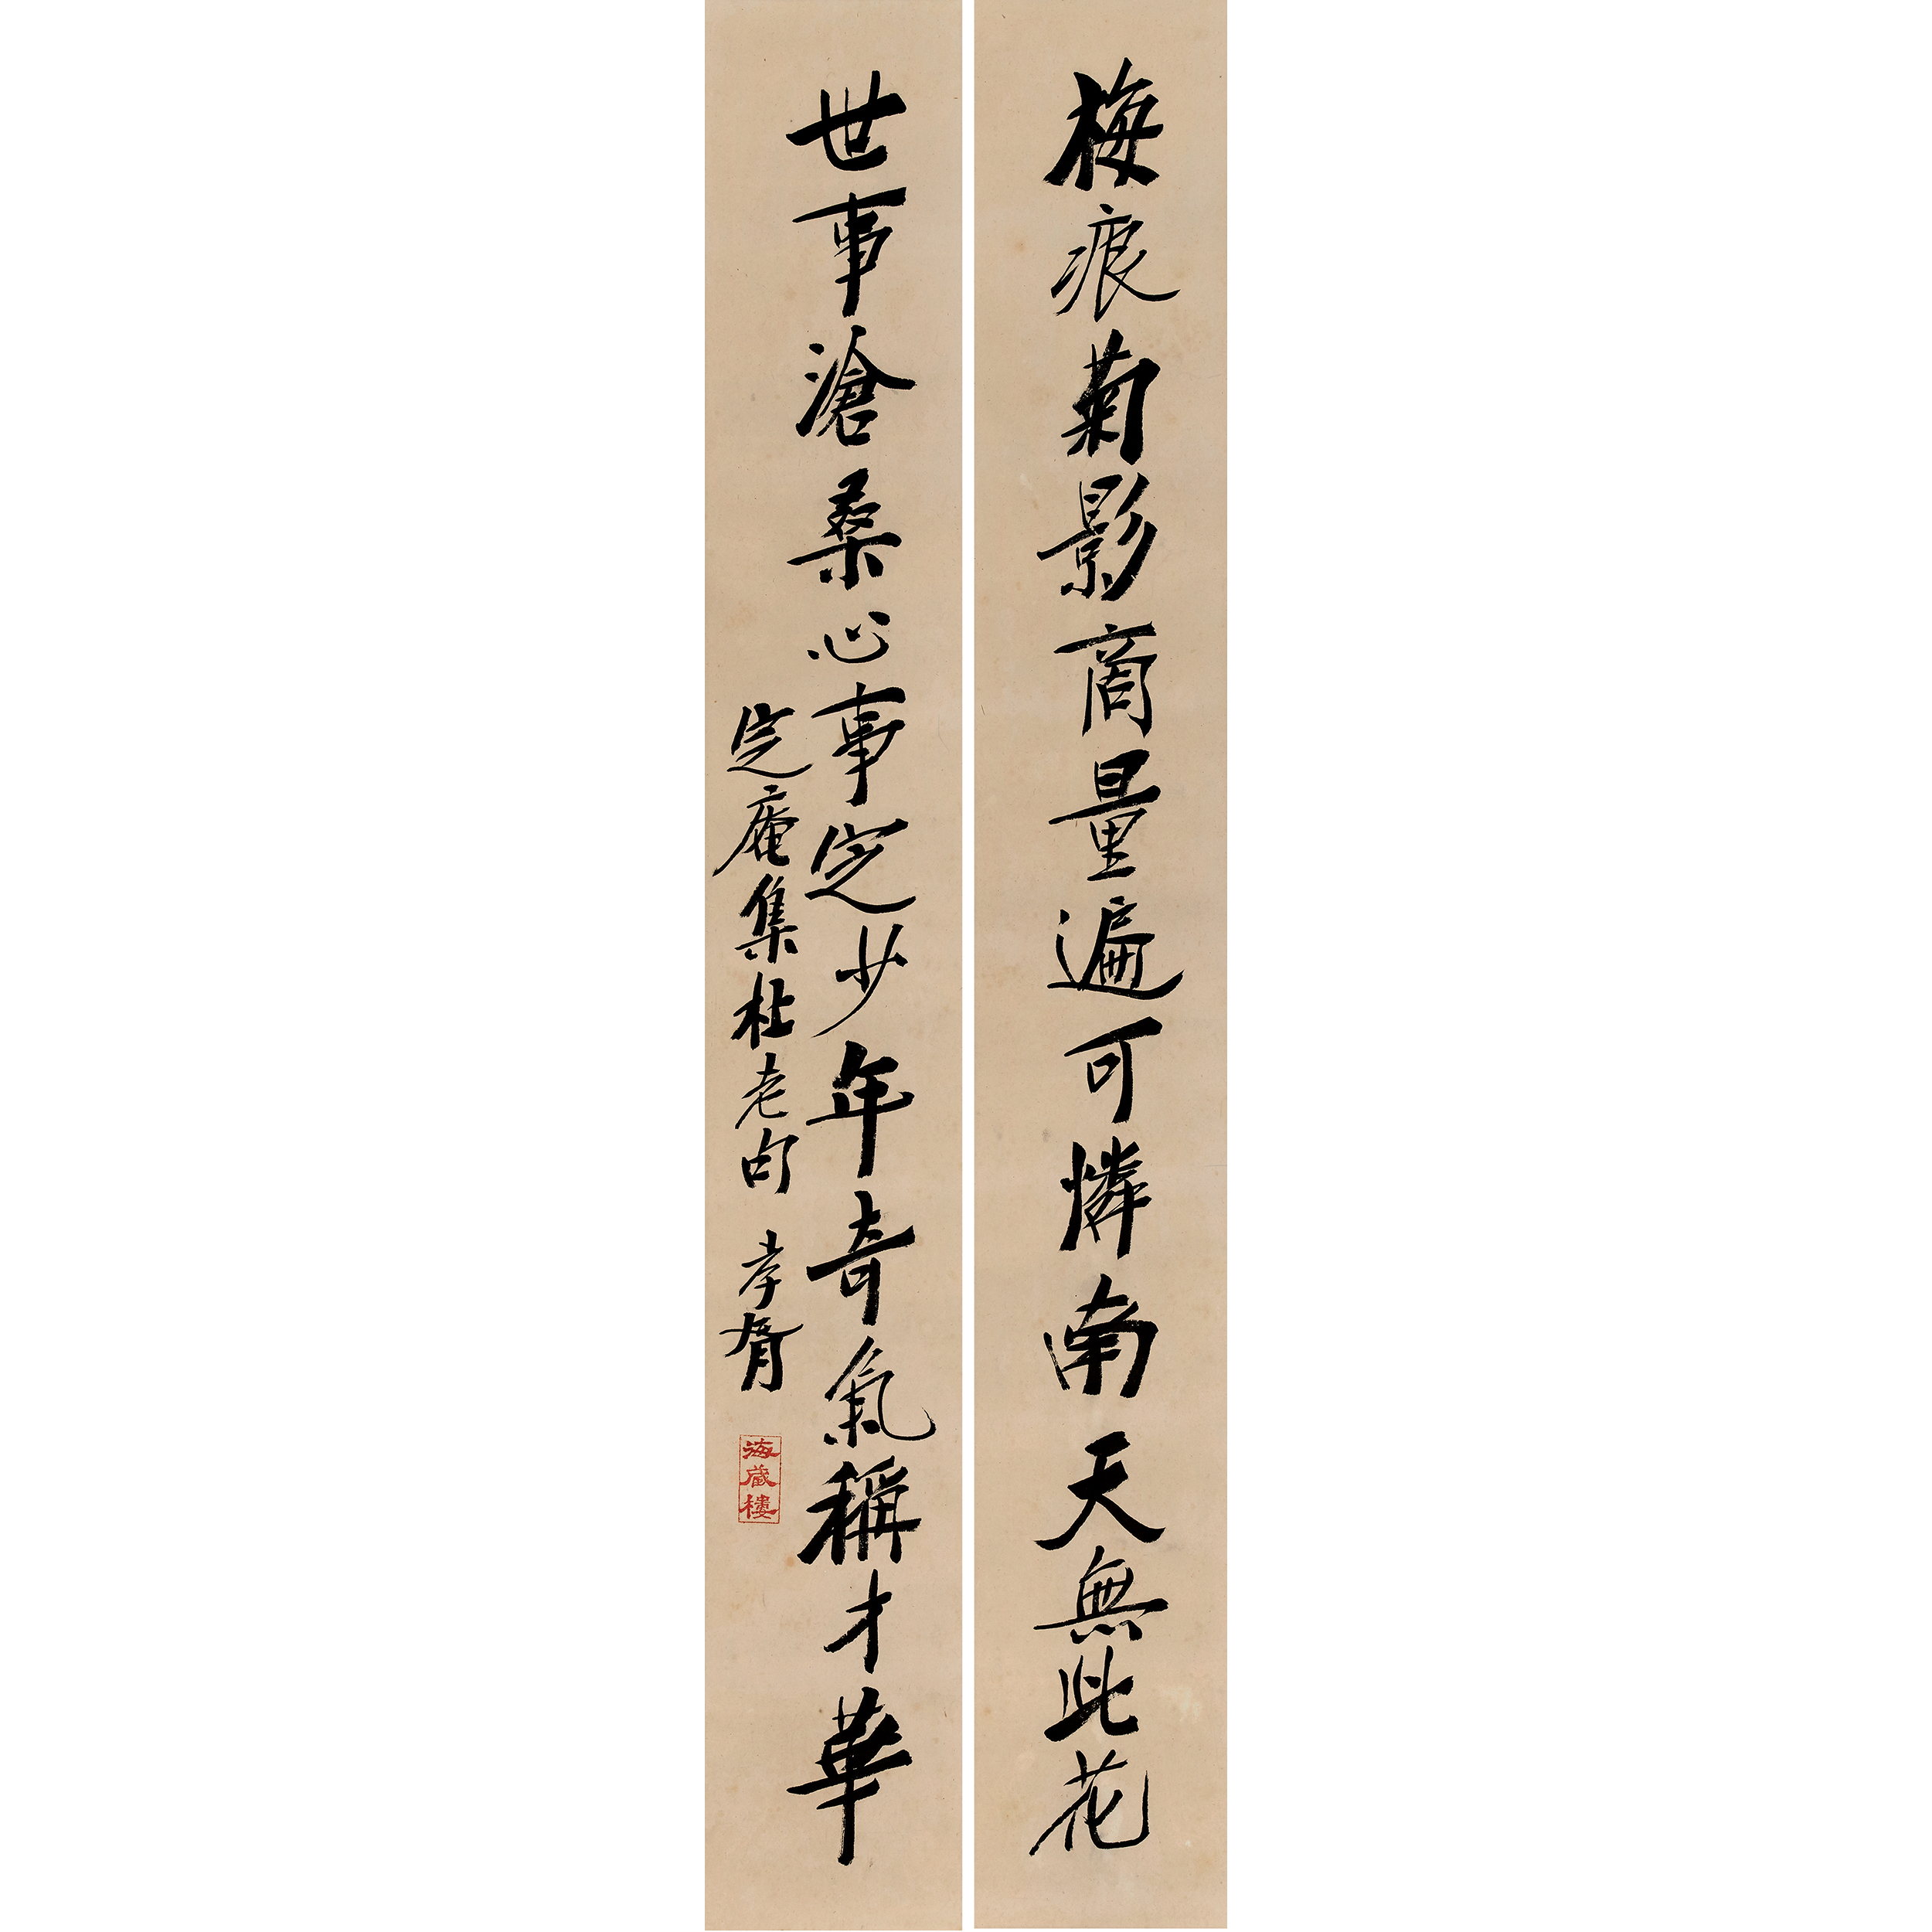 梅痕菊影商量遍可憐南天無此花
世事滄桑心事定少年奇氣稱才華
定庵集杜老句 孝胥
海藏樓